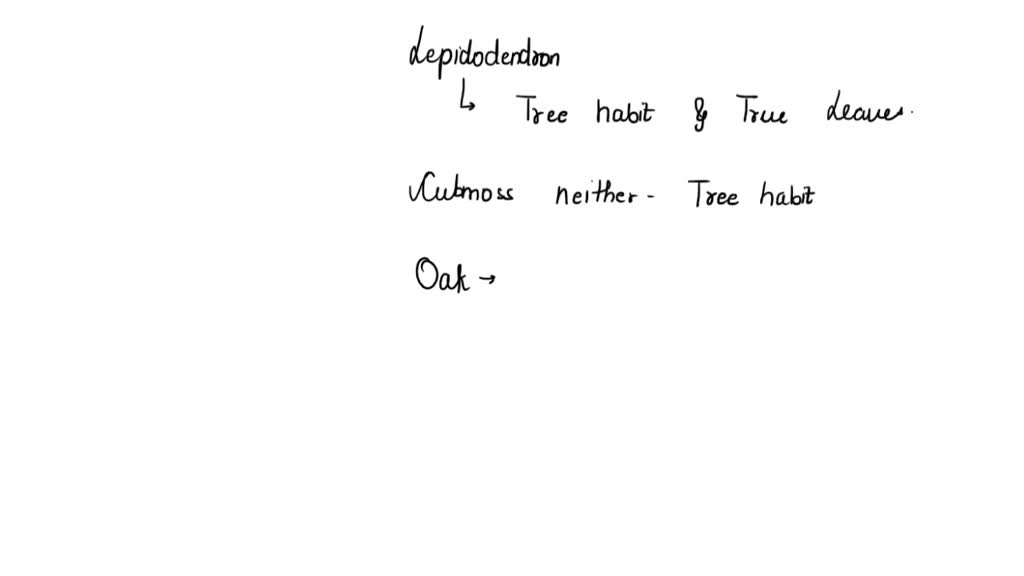 Lepidodendron
↳ Tree habit & True Leaves.
Clubmoss neither - Tree habit
Oak →